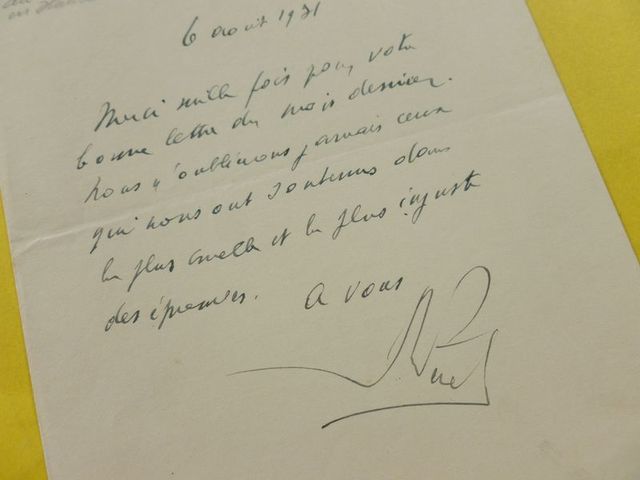 6 août 1971
Merci mille fois pour votre
bonne lettre du mois dernier.
Nous n'oublierons jamais ceux
qui nous ont soutenus dans
la plus cruelle et la plus injuste
des épreuves. A vous